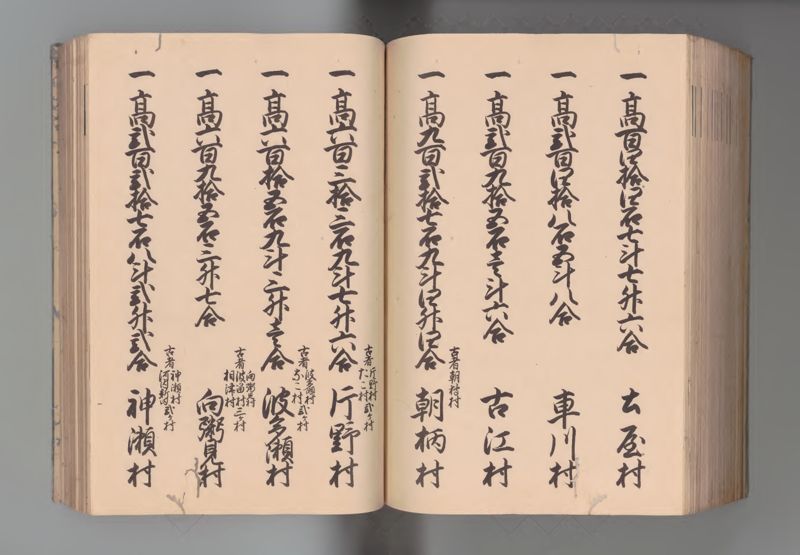 一 高百四拾四石七斗七升六合 土屋村
一 高弐百四拾八石五斗八合 車川村
一 高弐百九拾五石壱斗六合 古江村
一 高九百弐拾七石九斗四升四合 朝柄村
古者朝柄村
一 高六百三拾三石九斗七升六合 片野村
古者 片野村 たこ村 弐ヶ村
一 高六百拾五石九斗三升壱合 波多瀬村
古者 波多瀬村 なこ村 弐ヶ村
一 高六百九拾五石三升七合 向粥見村
古者 向粥見村 波留村 相津村 三ヶ村
一 高弐百弐拾七石八斗弐升弐合 神瀬村
古者 神瀬村 弐ヶ村